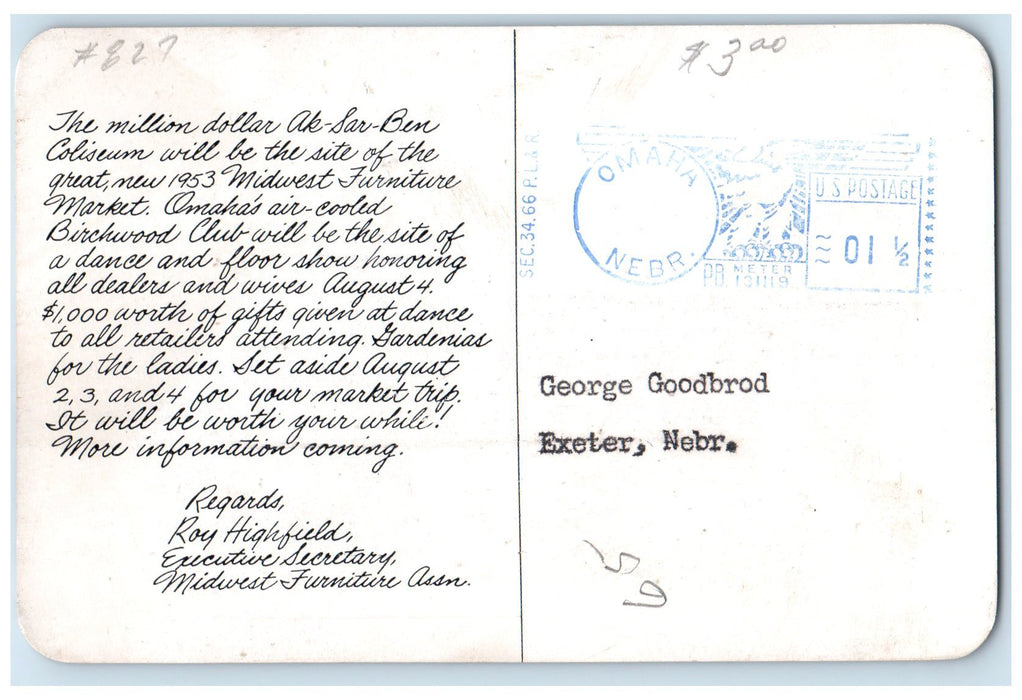 #827
The million dollar Ak-Sar-Ben
Coliseum will be the site of the
great, new 1953 Midwest Furniture
Market. Omaha's air-cooled
Birchwood Club will be the site of
a dance and floor show honoring
all dealers and wives August 4.
$1,000 worth of gifts given at dance
to all retailers attending. Gardenias
for the ladies. Set aside August
2, 3, and 4 for your market trip.
It will be worth your while!
More information coming.
Regards,
Roy Highfield,
Executive Secretary,
Midwest Furniture Assn.
$3.00
SEC. 34.66 P.L.& R
OMAHA
NEBR.
PB. METER
U.S. POSTAGE
01 ½
George Goodbrod
Exeter, Nebr.